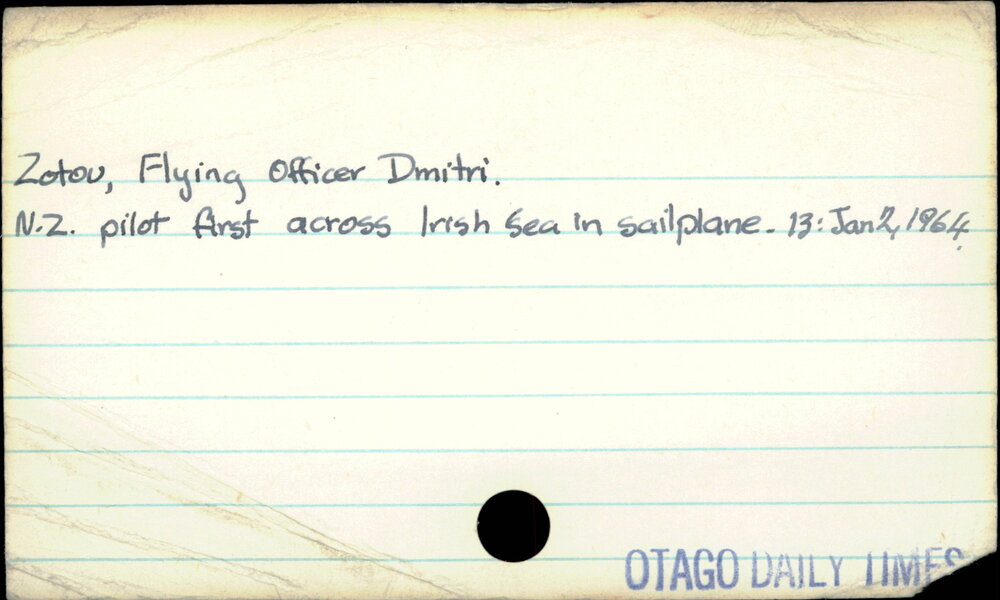 Zotov, Flying Officer Dmitri.
N.Z. pilot first across Irish Sea in sailplane. 13: Jan 2, 1964.
OTAGO DAILY TIMES